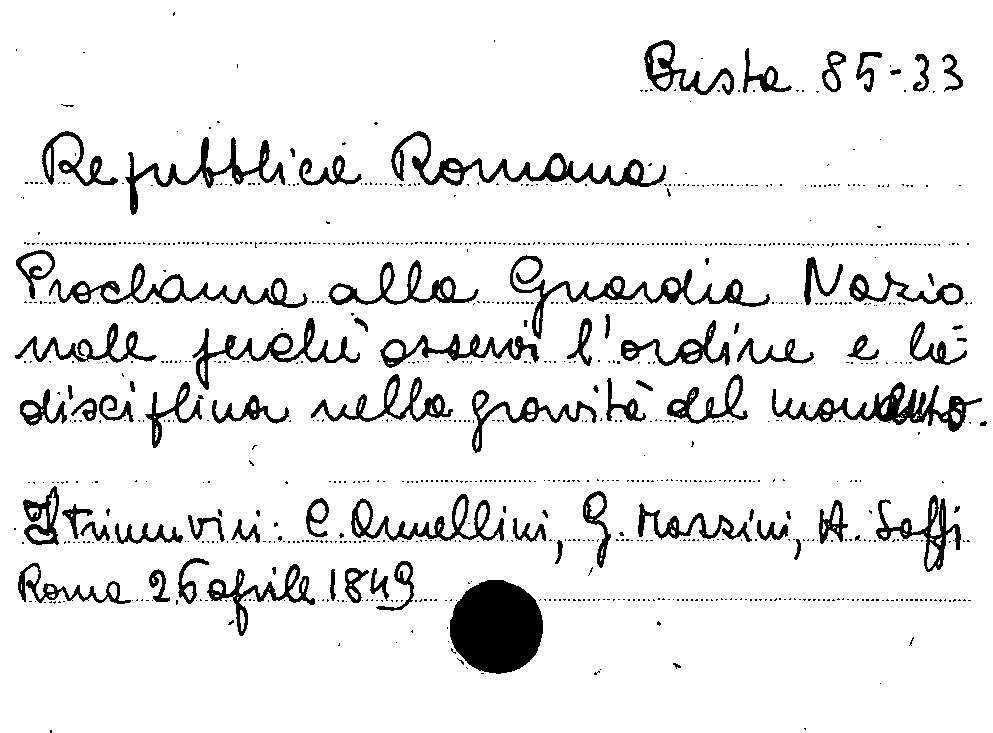 Busta 85-33
Repubblica Romana
Proclama alla Guardia Nazio
nale perchè osservi l'ordine e la
disciplina nella gravità del momento.
I Triumviri: C. Armellini, G. Mazzini, A. Saffi
Roma 26 aprile 1849